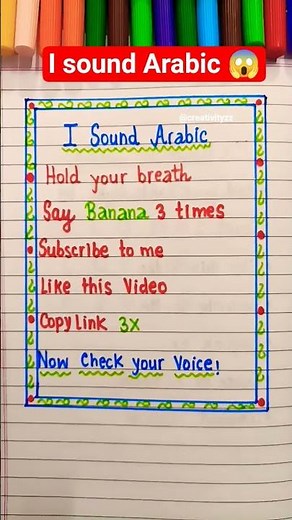 I sound Arabic 😱
@creativityzs
I Sound Arabic
Hold your breath
Say Banana 3 times
Subscribe to me
Like this Video
Copy link 3x
Now Check your Voice!